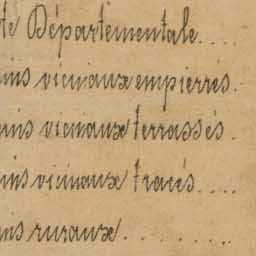 te Départementale....
ins vicinaux empierrés.
ins vicinaux terrassés.
ins vicinaux tracés....
ins ruraux........